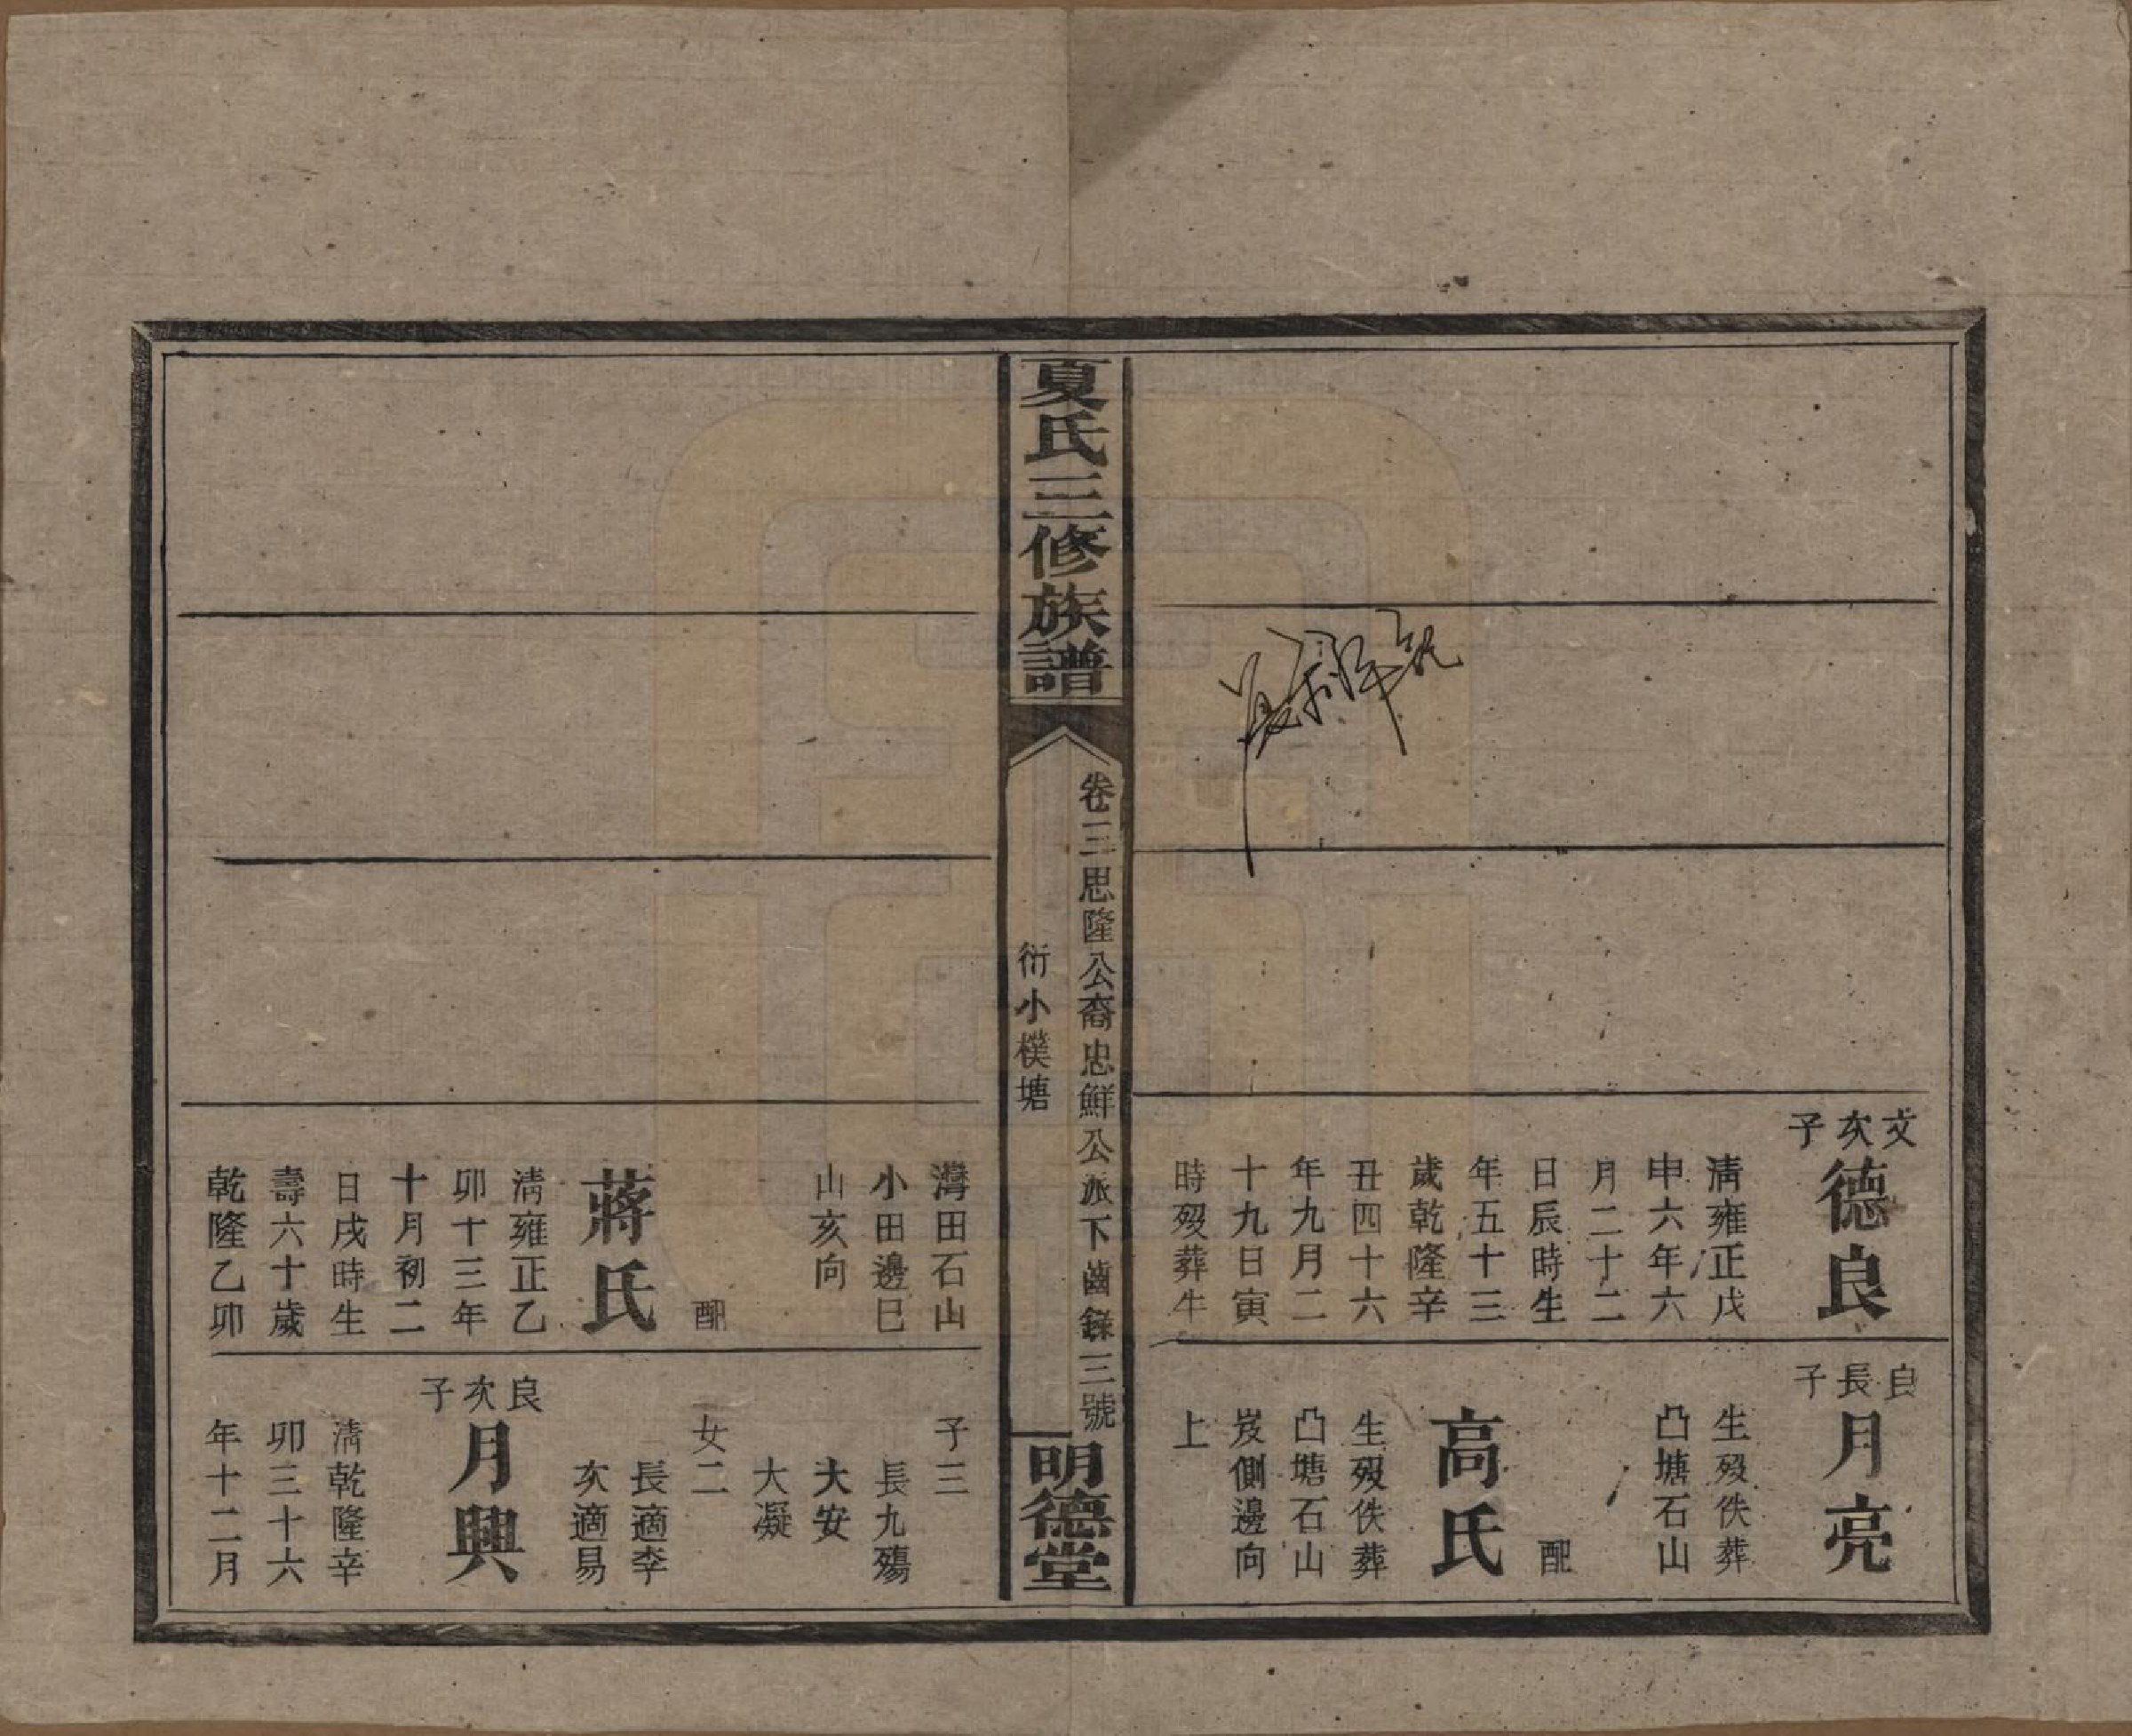 文次子
德良
清雍正戊
申六年六
月二十二
日辰時生
年五十三
歲乾隆辛
丑四十六
年九月二
十九日寅
時歿葬牛
良長子
月亮
生歿佚葬
凸塘石山
配
高氏
生歿佚葬
凸塘石山
岌側邊向
上
夏氏三修族譜
卷三思隆公裔忠鮮公派下齒錄三號
衍小樸塘
明德堂
灣田石山
小田邊巳
山亥向
配
蔣氏
清雍正乙
卯十三年
十月初二
日戌時生
壽六十歲
乾隆乙卯
子三
長九殤
大安
大凝
女二
長適李
次適易
良次子
月興
清乾隆辛
卯三十六
年十二月